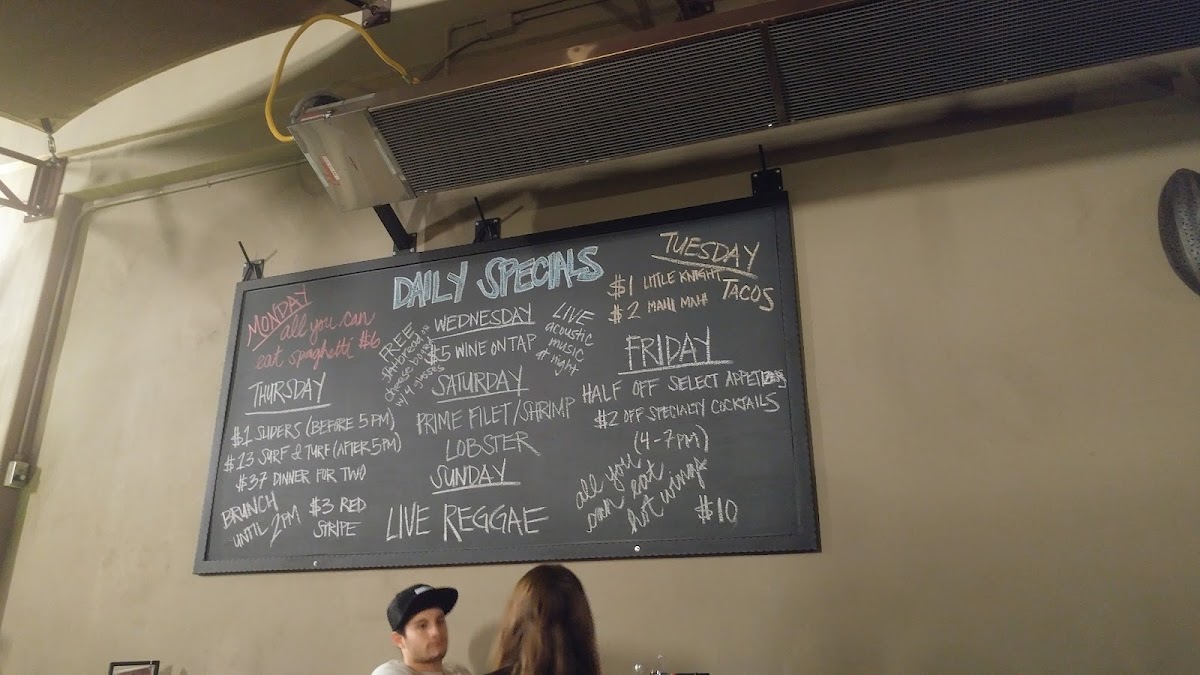 DAILY SPECIALS
MONDAY
all you can
eat spaghetti $6
TUESDAY
$1 LITTLE KNIGHT
$2 MAHI MAHI
TACOS
WEDNESDAY
$5 WINE ON TAP
FREE
cheese board
w/ 4 glasses
LIVE
acoustic
music
at night
THURSDAY
$1 SLIDERS (BEFORE 5PM)
$13 SURF & TURF (AFTER 5PM)
$37 DINNER FOR TWO
FRIDAY
HALF OFF SELECT APPETIZERS
$2 OFF SPECIALTY COCKTAILS
(4-7PM)
all you
can eat
hot wings
$10
SATURDAY
PRIME FILET/SHRIMP
LOBSTER
SUNDAY
LIVE REGGAE
BRUNCH
UNTIL 2PM
$3 RED
STRIPE